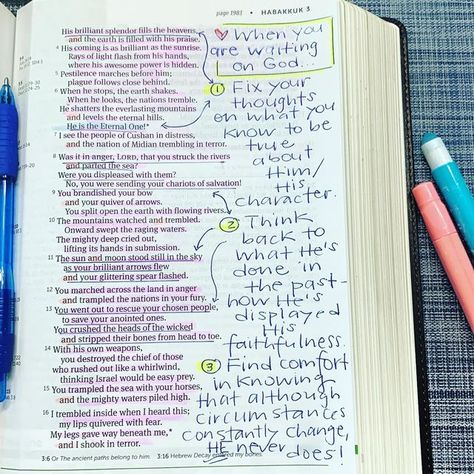 page 1983
HABAKKUK 3
His brilliant splendor fills the heavens,
and the earth is filled with his praise.
4 His coming is as brilliant as the sunrise.
Rays of light flash from his hands,
where his awesome power is hidden.
5 Pestilence marches before him;
plague follows close behind.
6 When he stops, the earth shakes.
When he looks, the nations tremble.
He shatters the everlasting mountains
and levels the eternal hills.
He is the Eternal One!*
7 I see the people of Cushan in distress,
and the nation of Midian trembling in terror.
8 Was it in anger, LORD, that you struck the rivers
and parted the sea?
Were you displeased with them?
No, you were sending your chariots of salvation!
9 You brandished your bow
and your quiver of arrows.
You split open the earth with flowing rivers.
10 The mountains watched and trembled.
Onward swept the raging waters.
The mighty deep cried out,
lifting its hands in submission.
11 The sun and moon stood still in the sky
as your brilliant arrows flew
and your glittering spear flashed.
12 You marched across the land in anger
and trampled the nations in your fury.
13 You went out to rescue your chosen people,
to save your anointed ones.
You crushed the heads of the wicked
and stripped their bones from head to toe.
14 With his own weapons,
you destroyed the chief of those
who rushed out like a whirlwind,
thinking Israel would be easy prey.
15 You trampled the sea with your horses,
and the mighty waters piled high.
16 I trembled inside when I heard this;
my lips quivered with fear.
My legs gave way beneath me,*
and I shook in terror.
3:6 Or The ancient paths belong to him. 3:16 Hebrew Decay entered my bones.
When you
are waiting
on God...
1 Fix your
thoughts
on what you
know to be
true
about
Him/
His
character.
2 Think
back to
what He's
done in
the past-
how He's
displayed
His
faithfulness.
3 Find comfort
in knowing
that although
circumstances
constantly change,
HE never
does!